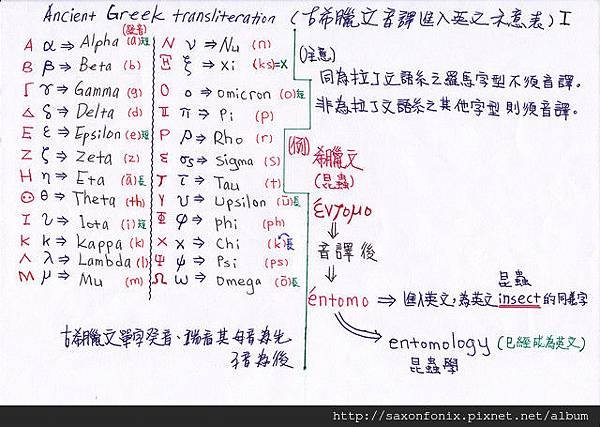 Ancient Greek transliteration (古希臘文音譯進入英文示意表) I
(發音)
Α α ⇒ Alpha (a)短
Β β ⇒ Beta (b)
Γ γ ⇒ Gamma (g)
Δ δ ⇒ Delta (d)
Ε ε ⇒ Epsilon (e)短
Ζ ζ ⇒ Zeta (z)
Η η ⇒ Eta (ā)長
Θ θ ⇒ Theta (th)
Ι ι ⇒ Iota (i)短
Κ κ ⇒ Kappa (k)
Λ λ ⇒ Lambda (l)
Μ μ ⇒ Mu (m)
Ν ν ⇒ Nu (n)
Ξ ξ ⇒ Xi (ks)=x
Ο ο ⇒ omicron (o)短
Π π ⇒ Pi (p)
Ρ ρ ⇒ Rho (r)
Σ σς ⇒ Sigma (s)
Τ τ ⇒ Tau (t)
Υ υ ⇒ Upsilon (ū)長
Φ φ ⇒ phi (ph)
Χ χ ⇒ Chi (k)
Ψ ψ ⇒ Psi (ps)
Ω ω ⇒ Omega (ō)長
古希臘文單字發音、端看其母音為先
子音為後
(注意)
同為拉丁文語系之羅馬字型不須音譯。
非為拉丁文語系之其他字型則須音譯。
(例)
希臘文
(昆蟲)
έντομο
音譯後
昆蟲
éntomo ⇒ 進入英文,為英文insect的同義字
entomology (已經成為英文)
昆蟲學
http://saxonfonix.pixnet.net/album